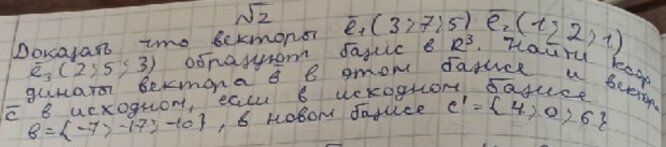 √2
Доказать что векторы e̅₁(3;7;5) e̅₂(1;2;1)
e̅₃(2;5;3) образуют базис в R³. Найти коор
динаты вектора b̅ в этом базисе и вектора
c̅ в исходном, если в исходном базисе
b={-7;-17;-10}, в новом базисе c'={4;0;6}